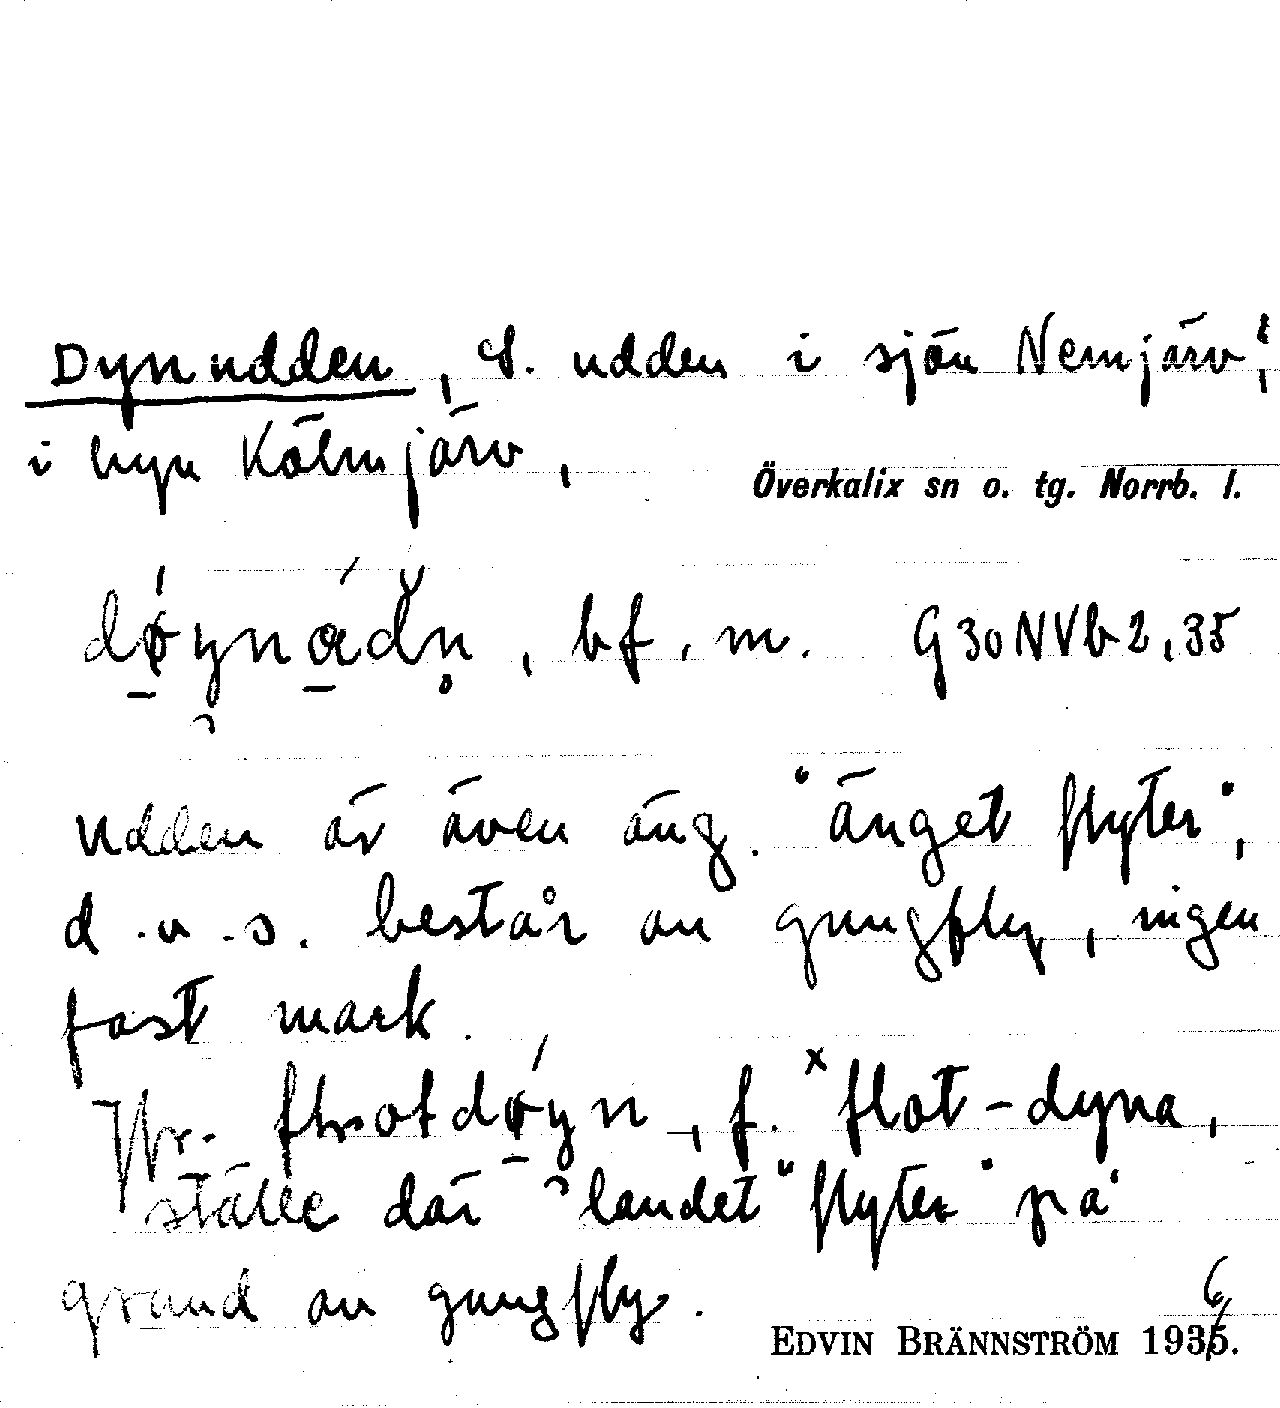 Dynudden, S. udden i sjön Nemjärv,
i byn Kölmjärv,
Överkalix sn o. tg. Norrb. l.
bf. m. G30NVb2,35
udden är även äng. "änget flyter",
d.v.s. består av gungfly, ingen
fast mark.
Jfr. flotdøyn, f. ˣflot-dyna,
ställe där landet "flyter" på
grund av gungfly.
EDVIN BRÄNNSTRÖM 1936.